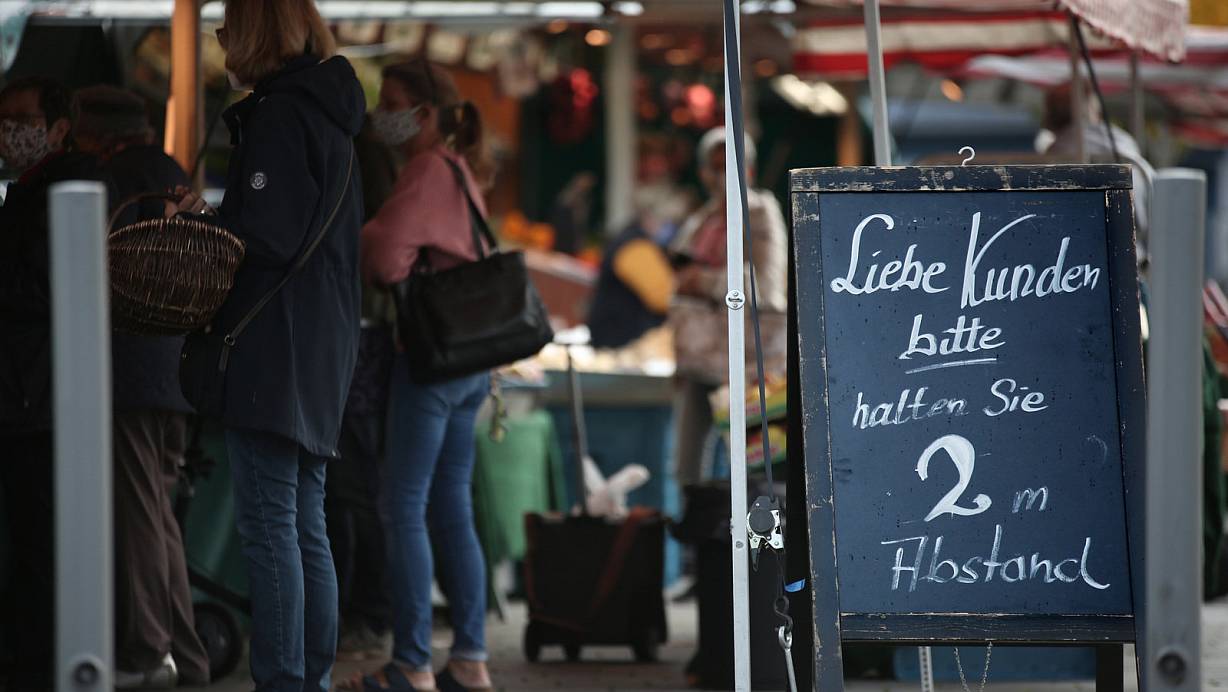 Liebe Kunden
bitte
halten Sie
2 m
Abstand